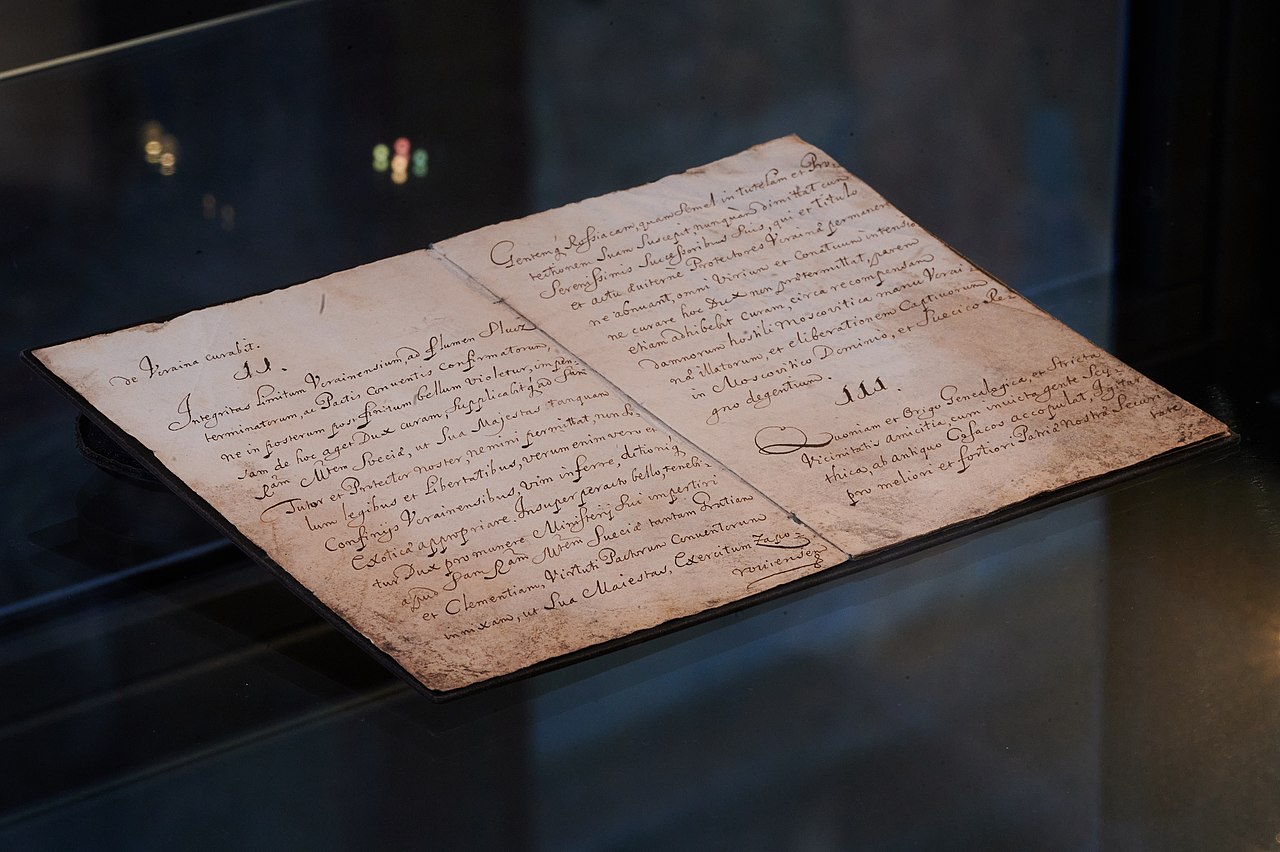 de Ucraina curabit.
II.
Integritas Limitum Ucrainensium, ad flumen Slucz
terminatorum, ac Pactis Conventis confirmatorum,
ne in posterum post finitum bellum violetur, impen-
sam de hoc aget Dux curam, supplicabitq́ Sam
Ram Mtem Sveciæ, ut Sua Majestas tanquam
Tutor et Protector noster, nemini permittat, non so-
lum legibus et Libertatibus, verum enim vero et
Confinijs Ucrainensibus, vim inferre, ditioniq́
Exoticæ appropriare. Insuper peracto bello, tenebi-
tur Dux pro munere Ministerij sui impertiri
apud Sam Ram Mtem Sveciæ tantam Gratiam
et Clementiam, Virtuti Pactorum Conventorum
innixam, ut Sua Maiestas, Exercitum Zapo-
roviensez
Gentemq́ Rossiacam, quam semel in tutelam et Pro-
tectionem Suam suscepit nunquàm dimittat cum
Serenissimis Successoribus suis, qui et titulo
et actu æviternè Protectores Ucrainæ permanere
ne abnuant, omni Virium et Conatuum intensio
ne curare hoc Dux non prætermittat, paren
etiam adhibebit curam, circa recompensam
damnorum hostili Moscovitica manu Ucrai-
næ illatorum, et eliberationem Captivorum
in Moscovitico Dominio, et Suecico Re-
gno degentium.
III.
Quoniam et Origo Genealogica, et stricta
Vicinitatis amicitia, cum invicta gente Scy-
thica, ab antiquo Casacos accopulat, Igitur
pro meliori et fortiori Patriæ nostræ Securi
tate